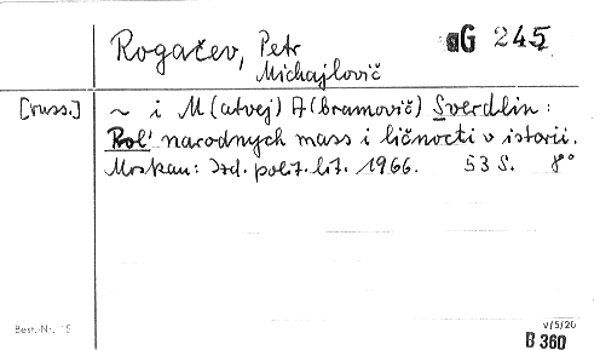 Rogačev, Petr
Michajlovič
aG 245
[russ.]
~ i M(atvej) A(bramovič) Sverdlin:
Rol' narodnych mass i ličnocti v istorii.
Moskau: Izd. polit. lit. 1966. 53 S. 8°
Best.-Nr. 15
V/5/20
B 360